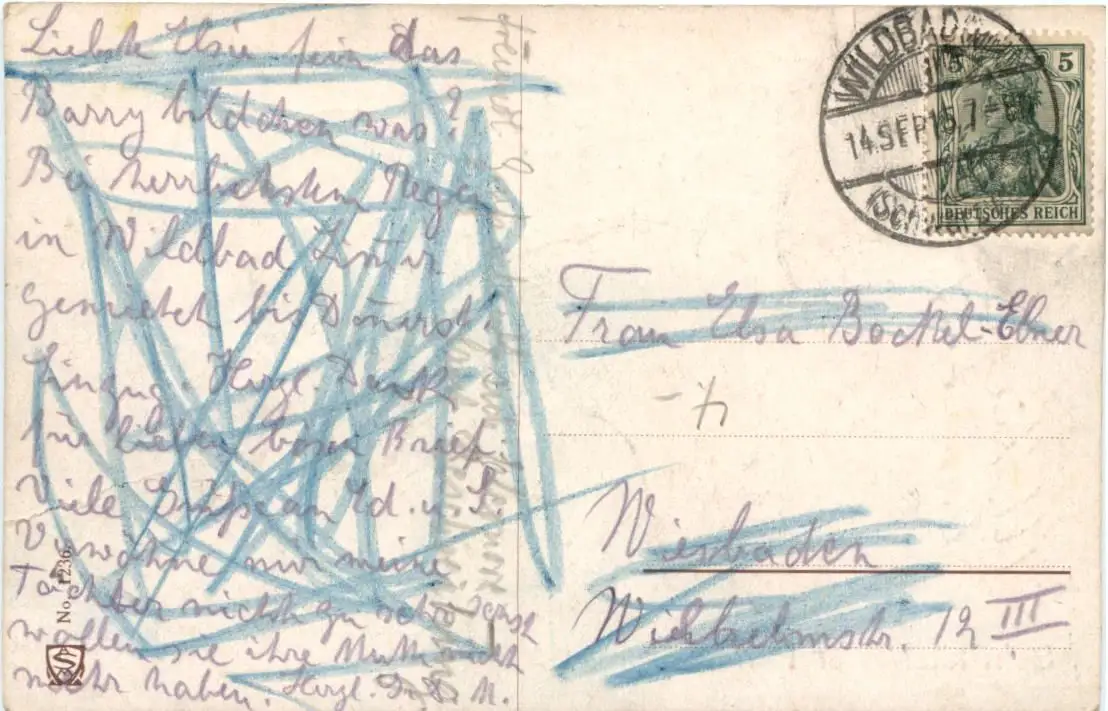 Liebste Elsie fein das
Barry bildchen was?
Bei herrlichstem Regen
in Wildbad Zimmer
gemietet bis Donnerst.
Einzug. Herzl. Dank
für lieben bösen Brief.
Viele Grüsse an Ed. u. S.
Verwöhne mir meine
Tochter nicht zu sehr sonst
wollen sie ihre Mutti nicht
mehr haben. Herzl. M.
WILDBAD
14.SEP.15.7-8
5
5
DEUTSCHES REICH
Frau Elsa Bockel-Ebner
Wiesbaden
Wilhelmstr. 12 III
No. 1236